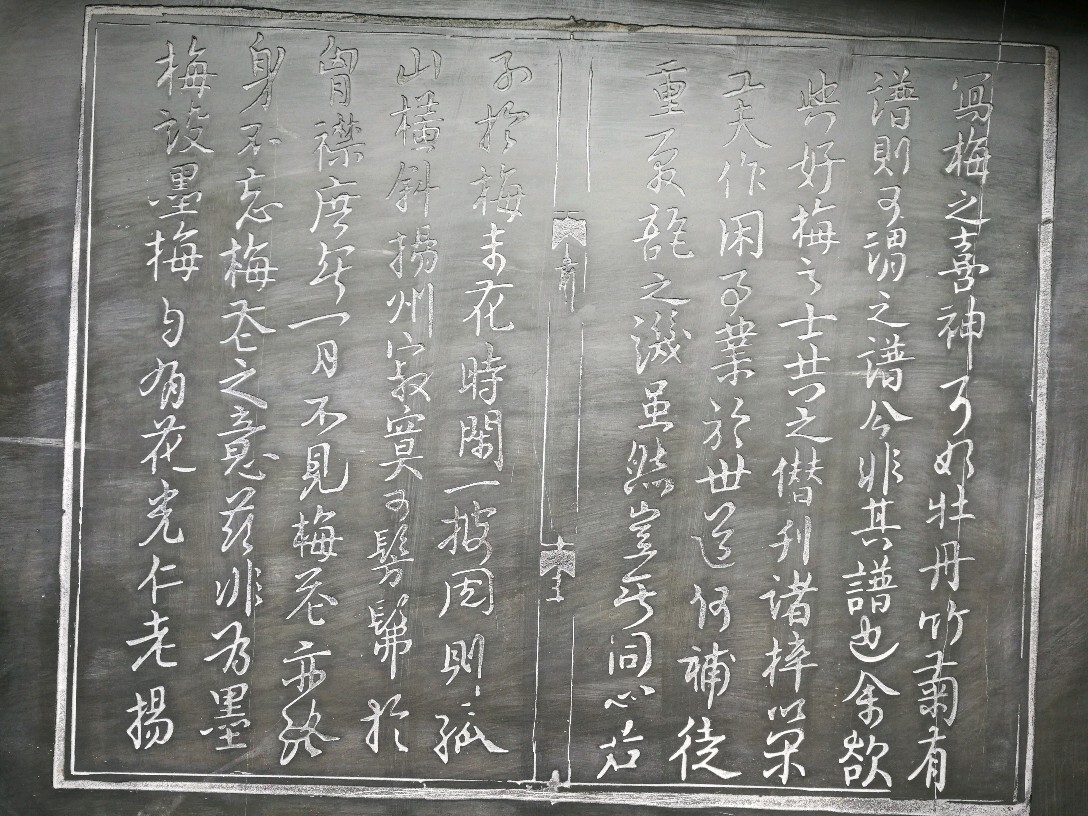 寫梅之喜神可如牡丹竹菊有
譜則可謂之譜今非其譜也余欲
與好梅之士共之僭刊諸梓以閑
工夫作閑事業於世道何補徒
重覆瓿之譏雖然豈無同心君
前
子於梅未花時閑一披閱則孤
山橫斜揚州寂寞可髣髴於
胷襟庶無一日不見梅花亦終
身不忘梅花之意茲非為墨
梅設墨梅自有花光仁老揚